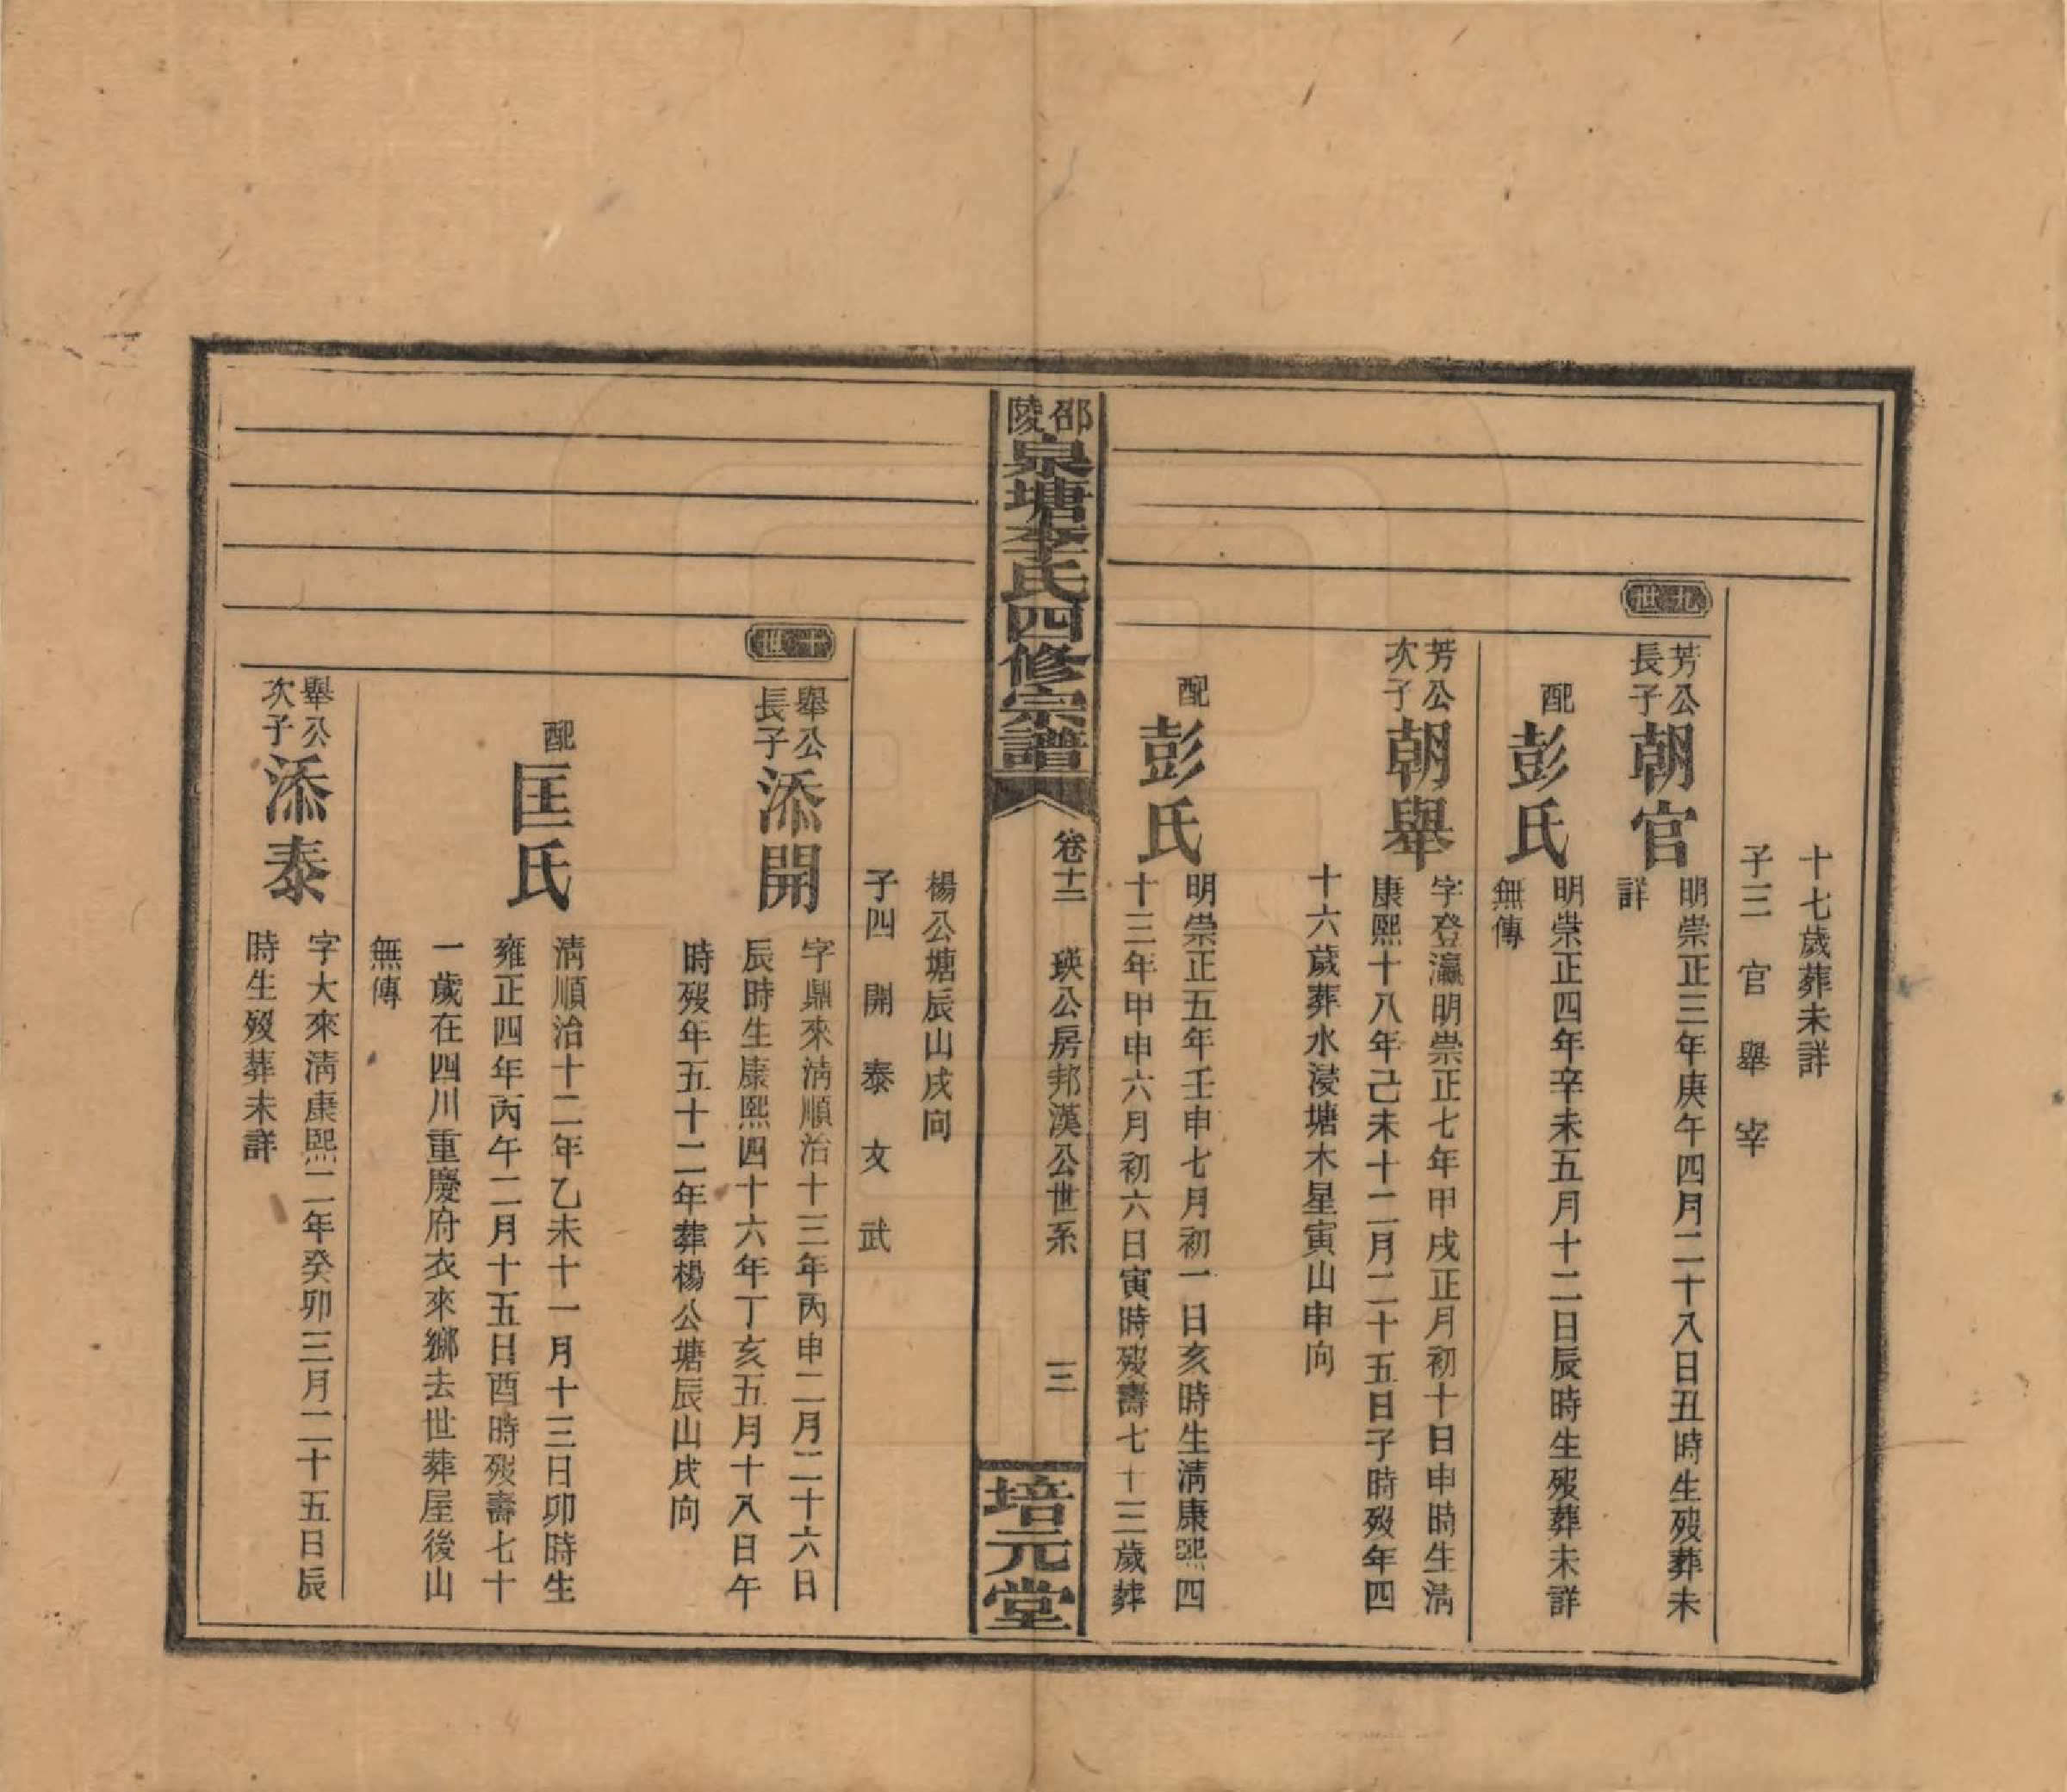 十七歲葬未詳
子三 官 舉 宰
九世
芳公長子朝官
明崇正三年庚午四月二十八日丑時生歿葬未
詳
配彭氏
明崇正四年辛未五月十二日辰時生歿葬未詳
無傳
芳公次子朝舉
字登瀛明崇正七年甲戌正月初十日申時生淸
康熙十八年己未十二月二十五日子時歿年四
十六歲葬水浸塘木星寅山申向
配彭氏
明崇正五年壬申七月初一日亥時生淸康熙四
十三年甲申六月初六日寅時歿壽七十三歲葬
邵陵泉塘李氏四修宗譜
卷十二 瑛公房邦漢公世系 三
培元堂
楊公塘辰山戌向
子四 開 泰 文 武
十世
舉公長子添開
字鼎來淸順治十三年丙申二月二十六日
辰時生康熙四十六年丁亥五月十八日午
時歿年五十二年葬楊公塘辰山戌向
配匡氏
淸順治十二年乙未十一月十三日卯時生
雍正四年丙午二月十五日酉時歿壽七十
一歲在四川重慶府衣來鄉去世葬屋後山
無傳
舉公次子添泰
字大來淸康熙二年癸卯三月二十五日辰
時生歿葬未詳